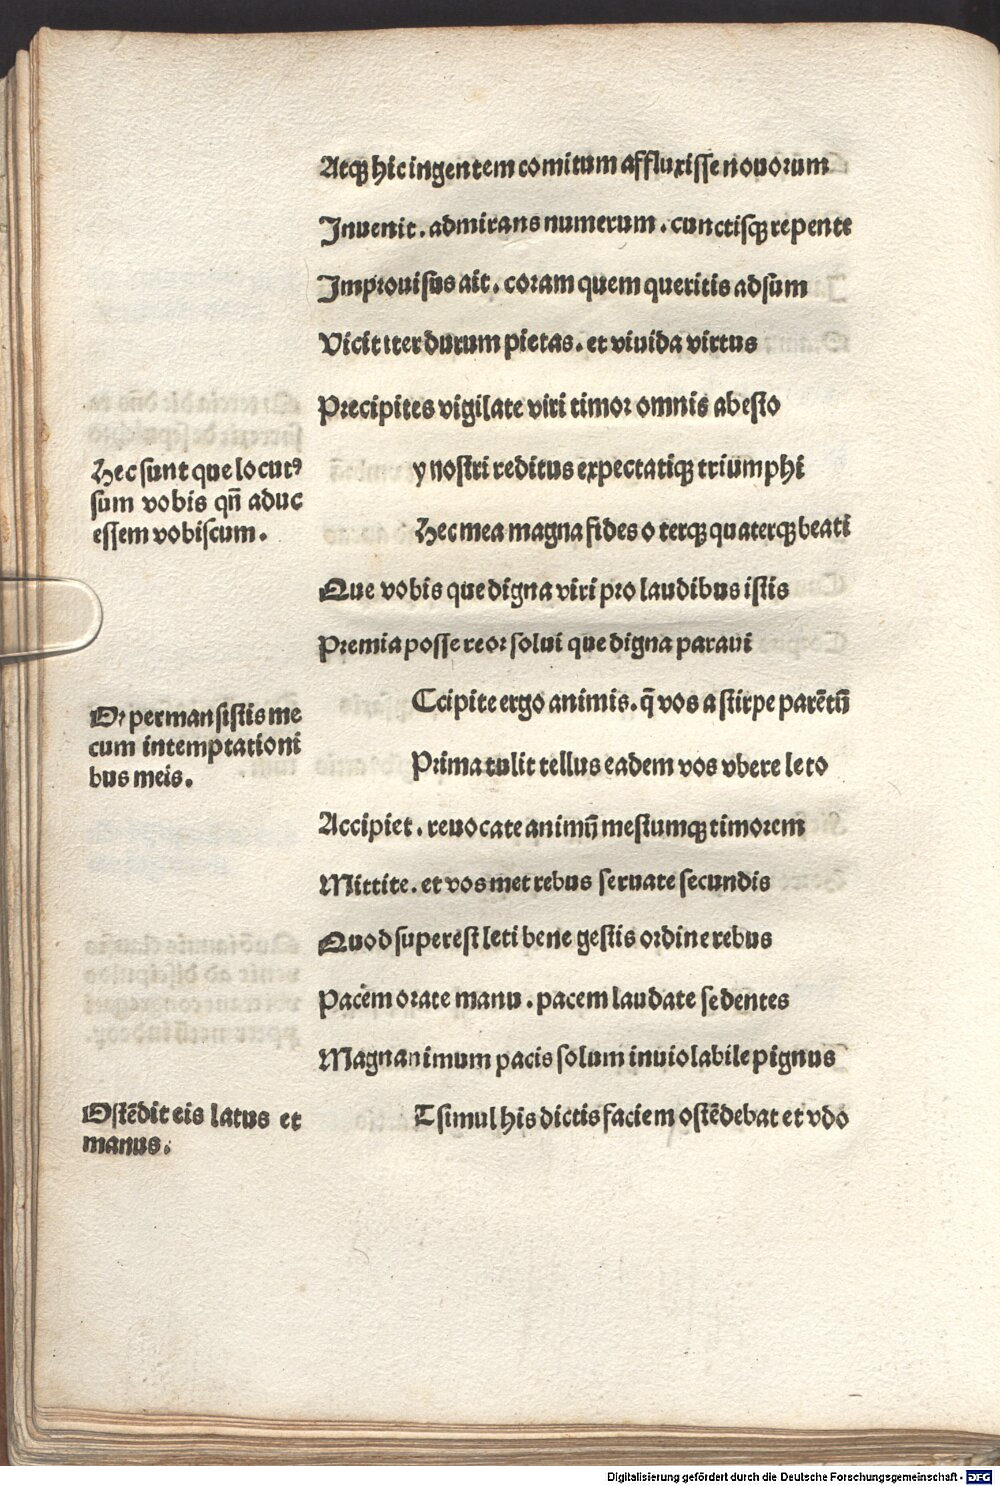 Atqꝫ hic ingentem comitum affluxisse nouorum
Inuenit . admirans numerum . cunctisqꝫ repente
Improuisus ait . coram quem queritis adsum
Vicit iter durum pietas . et viuida virtus
Precipites vigilate viri timor omnis abesto
Hec sunt que locutꝰ
sum vobis qn̄ aduc
essem vobiscum .
y nostri reditus expectatiqꝫ triumphi
Hec mea magna fides o terqꝫ quaterqꝫ beati
Que vobis que digna viri pro laudibus istis
Premia posse reor solui que digna paraui
Qꝛ permansistis me
cum in temptationi
bus meis .
Ccipite ergo animis . q̄ vos a stirpe parētū
Prima tulit tellus eadem vos vbere leto
Accipiet . reuocate animū mestumqꝫ timorem
Mittite . et vosmet rebus seruate secundis
Quod superest leti bene gestis ordine rebus
Pacem orate manu . pacem laudate sedentes
Magnanimum pacis solum inuiolabile pignus
Ostēdit eis latus et
manus .
T simul his dictis faciem ostēdebat et vdo
Digitalisierung gefördert durch die Deutsche Forschungsgemeinschaft - DFG